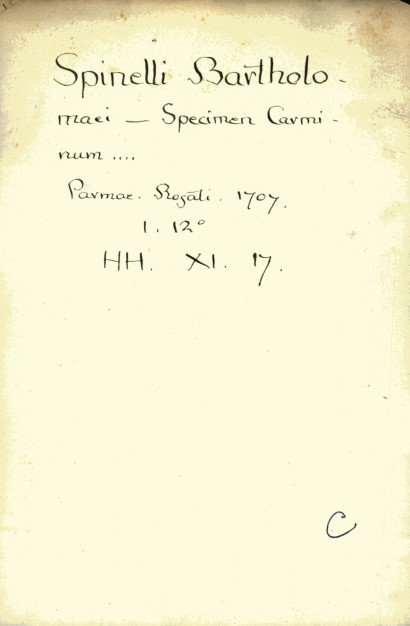 Spinelli Bartholo-
maei — Specimen Carmi-
num ....
Parmae. Rosati. 1707.
1. 12°
HH. XI. 17.
C